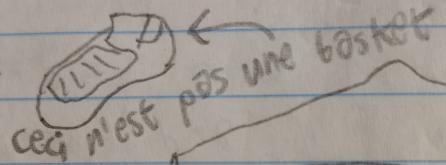 ceci n'est pas une basket